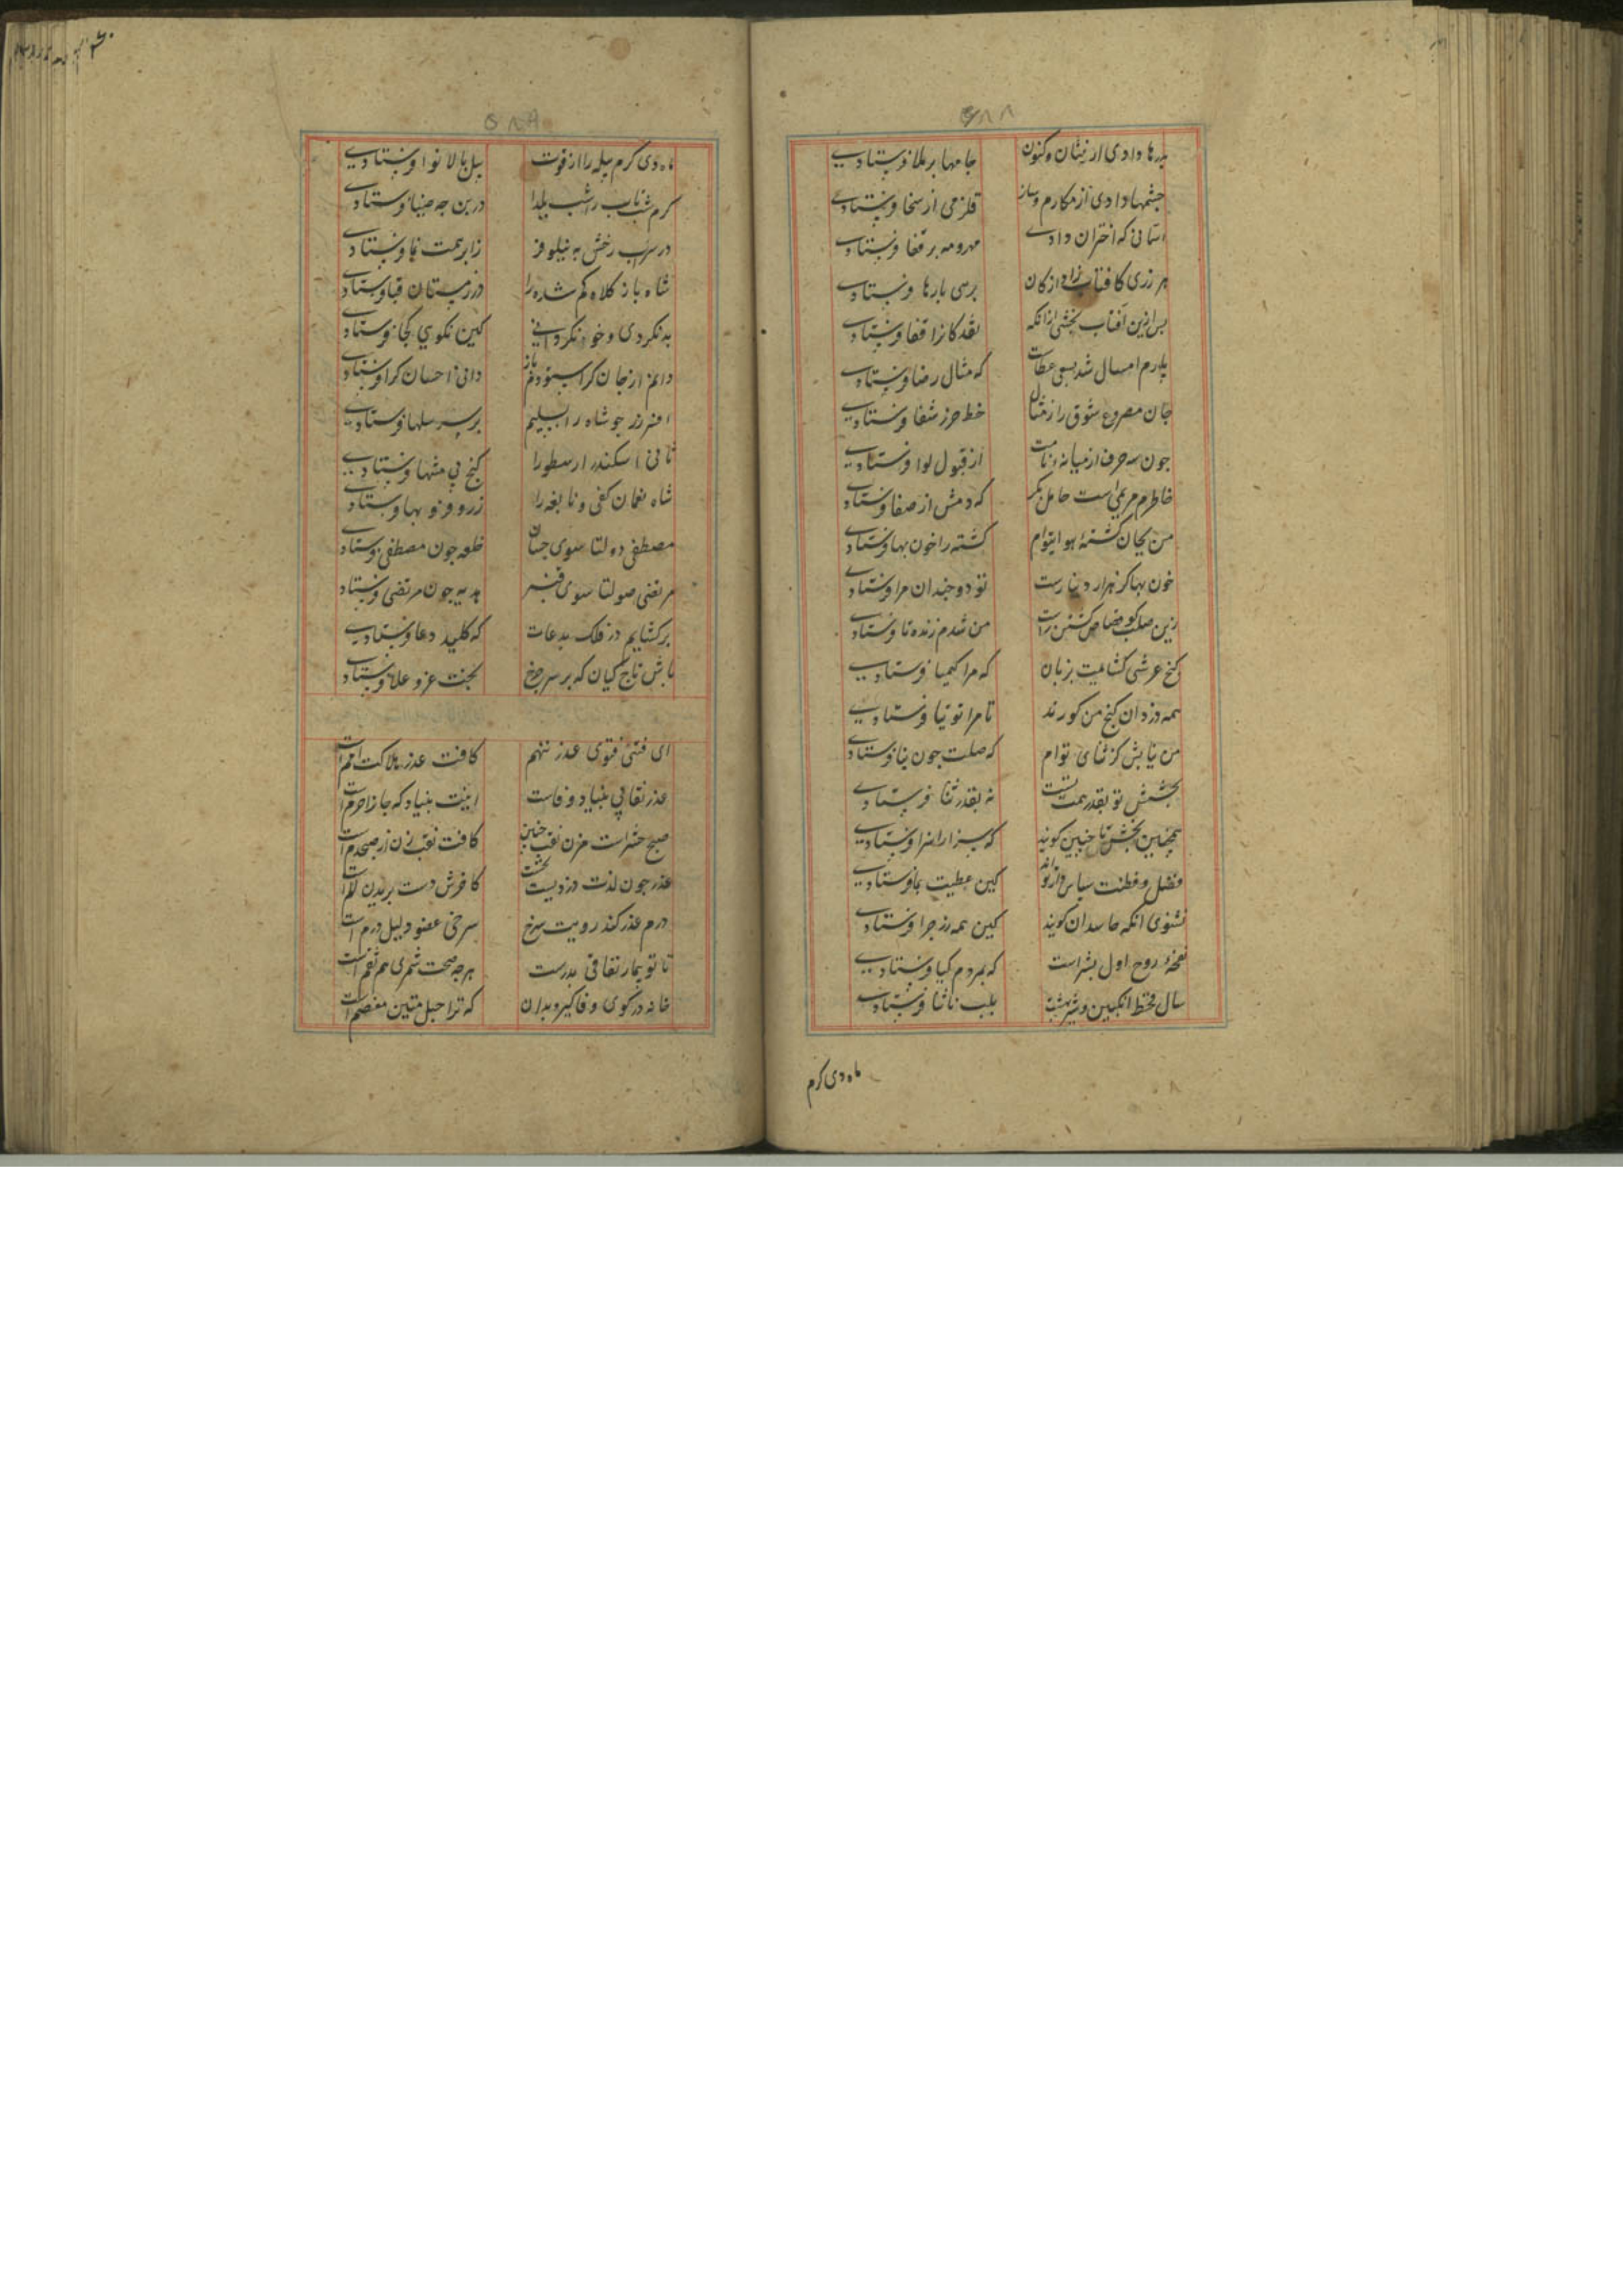 ۵۸۸
بدرها دادی از نیشان و کنون جامها بر ملا فرستادی
چشمها دادی از مکارم و باز قلزمی از سخا فرستادی
آسمانی که اختران دادی مهر و مه بر قفا فرستادی
هر زری کافتاب زاد از کان برسی بارها فرستادی
پس ازین آفتاب بخشی ازانکه نقد کانرا قفا فرستادی
پارم امسال شد بسعی عطات که مثال رضا فرستادی
جان مصروع شوق را ز مثال خط حرز شفا فرستادی
چون سه حرف از میانه نامت از قبول لوا فرستادی
خاطرم مریمی است حامل بکر که دمش از صفا فرستادی
من بجان کشته هوای توام کشته را خون بها فرستادی
خون بها گر هزار دینارست تو دو چندان مرا فرستادی
زین صلت کو قصاص کشتن راست من شدم زنده تا فرستادی
گنج عرشی گشایمت بزبان که مرا کیمیا فرستادی
همه دزدان گنج من کورند تا مرا توتیا فرستادی
من نیابش کز ثنای توام که صلت چون بنا فرستادی
بخشش تو بقدر همت تست نه بقدر ثنا فرستادی
همچنین بخش تا چنین گویند که سزا را سزا فرستادی
فضل و فطنت سپاس دار تواند کین عطیت بما فرستادی
نشنوی آنکه حاسدان گویند کین همه زر چرا فرستادی
نفخه روح اول بشر است که بمردم گیا فرستادی
سال قحط انگبین و شیر بهشت بلب ناشتا فرستادی
ماه دی کرم
۵۸۹
ماه دی کرم پیله را از قوت پیل بالا نوا فرستادی
کرم شب تاب را شب یلدا در بن چه ضیا فرستادی
در سراب رخش به نیلوفر ز ابر رحمت نما فرستادی
شاه باز کلاه گم شده را در زمستان قبا فرستادی
بد نکردی و خود نکردانی کین نکویی کجا فرستادی
دانم از جان کرا ستودم باز دانی احسان کرا فرستادی
افسر زر چو شاه دابسلیم بر سر بیسلها فرستادی
ثانی اسکندر ارسطو را گنج بی منتها فرستادی
شاه نعمان کفی و نابغه را زر و فر و بها فرستادی
مصطفی دولتا سوی حسان خلعه چون مصطفی فرستادی
مرتضی صولتا سوی قنبر هدیه چون مرتضی فرستادی
بر گشایم در فلک بدعات که کلید دعا فرستادی
باش تاج کیان که بر سر چرخ بخت عز و علا فرستادی
ای فتی فتوی غدر ننهم کافت غدر هلاکت امم است
غدر نقابی بنیاد وفاست اینت بنیاد که جانرا حرم است
صبح حشر است مزن نقب چنین کافت نقب زن از صبحدم است
غدر چون لذت دزدیست بخست کافرش دست بریدن الم است
درم غدر کند رویت سرخ سرخی عضو دلیل درم است
تا تو بیمار نفاقی بدرست هر چه صحت شمری هم نقم است
خانه در کوی وفا گیر و بدان که ترا حبل متین معتصم است